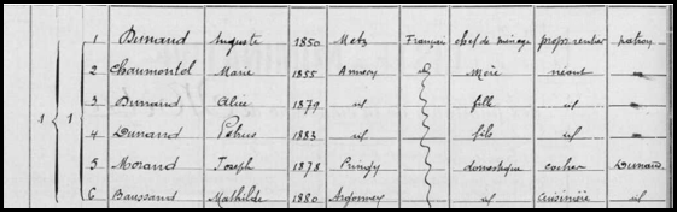 1 1 1 Dunand Auguste 1850 Metz Français chef de ménage propr rentier patron
2 Chaumontel Marie 1855 Annecy id mère néant —
3 Dunand Alice 1879 id fille id —
4 Dunand Petrus 1883 id fils id —
5 Morand Joseph 1878 Pringy domestique cocher Dunand
6 Baussand Mathilde 1880 Argonnex id cuisinière id